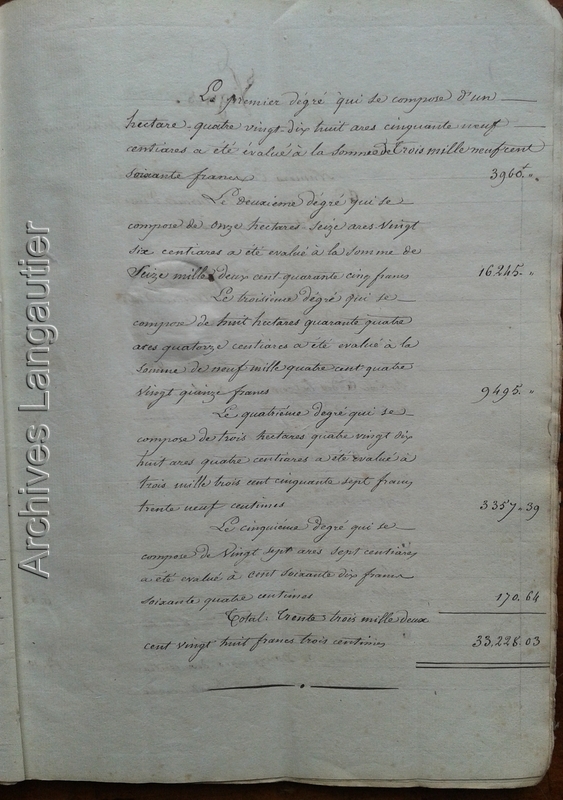 Le premier dégré qui se compose d'un
hectare quatre vingt-dix huit ares cinquante neuf
centiares a été évalué à la somme de Trois mille neuf cent
soixante francs 3960f "
Le deuxième dégré qui se
compose de onze hectares seize ares vingt
six centiares a été évalué à la somme de
Seize mille deux cent quarante cinq francs 16245. "
Le troisième dégré qui se
compose de huit hectares quarante quatre
ares quatorze centiares a été évalué à la
somme de neuf mille quatre cent quatre
vingt quinze francs 9495. "
Le quatrième dégré qui se
compose de trois hectares quatre vingt dix
huit ares quatre centiares a été évalué à
trois mille trois cent cinquante sept francs
trente neuf centimes 3357 " 39
Le cinquième dégré qui se
compose de Vingt sept ares sept centiares
a été évalué à cent soixante dix francs
soixante quatre centimes 170. 64
Total. Trente trois mille deux
cent vingt huit francs trois centimes 33,228. 03
Archives Langautier